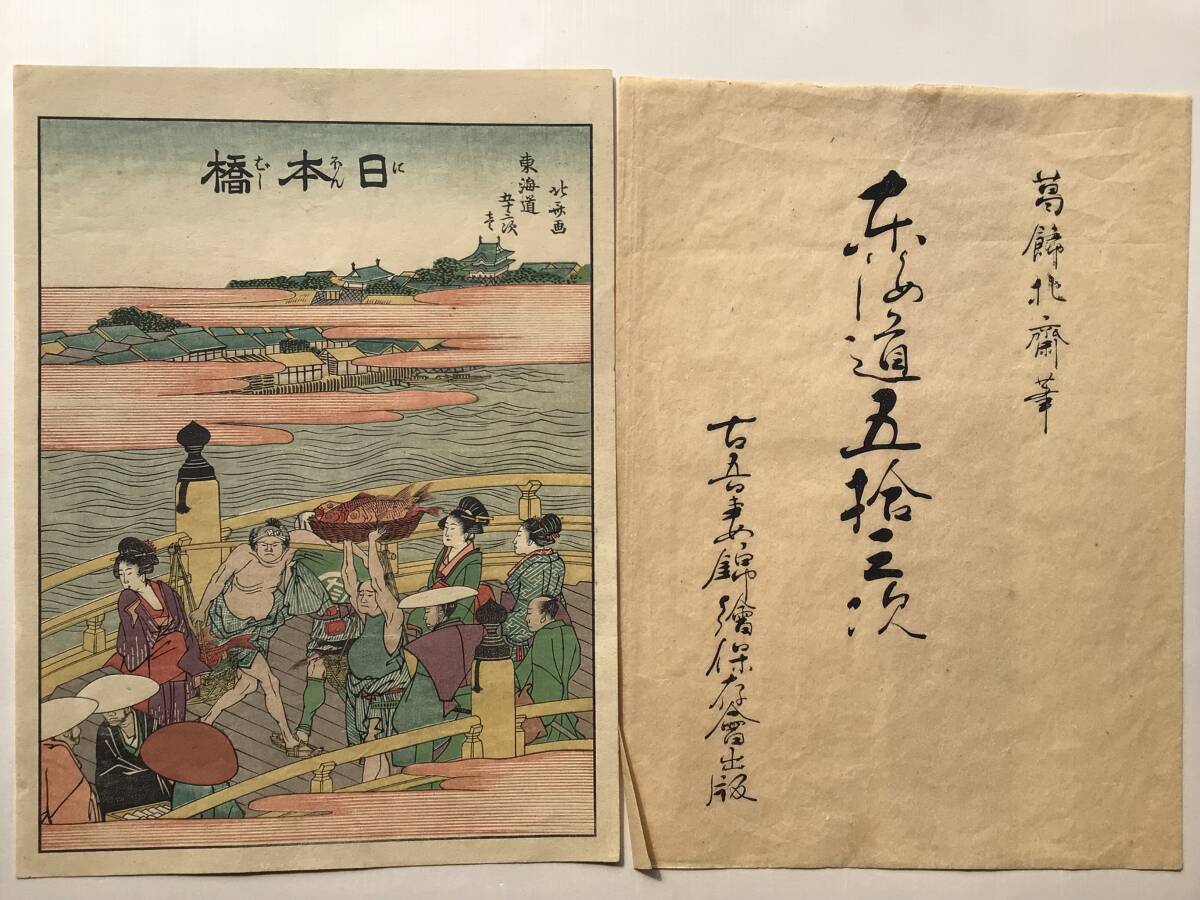 日本橋
に
ほん
ばし
北斎画
東海道
五十三次
葛飾北齋筆
東海道五拾三次
古吾妻錦繪保存會出版